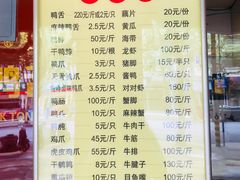 鸭舌 220元/斤或2元/只 藕片 20元/份
麻辣鸭舌 2.5元/只 黄瓜 20元/份
鸭脖 50元/斤 海带 20元/份
干鸭胗 10元/根 龙虾 100元/斤
鸭爪 3元/只 猪脚 15元/半只
无骨鸭爪 3.5元/只 对对虾 160元/斤
鸭肠 100元/斤 蟹脚 80元/斤
100元/斤 麻辣蟹 80元/斤
5元/只 牛肉干 200元/斤
鸡爪 45元/斤 牛筋 100元/斤
虎皮鸡爪 55元/斤 牛肚 100元/斤
干鹌鹑 8元/只 牛腱子 130元/斤
10元/只 目鱼嘴 100元/斤